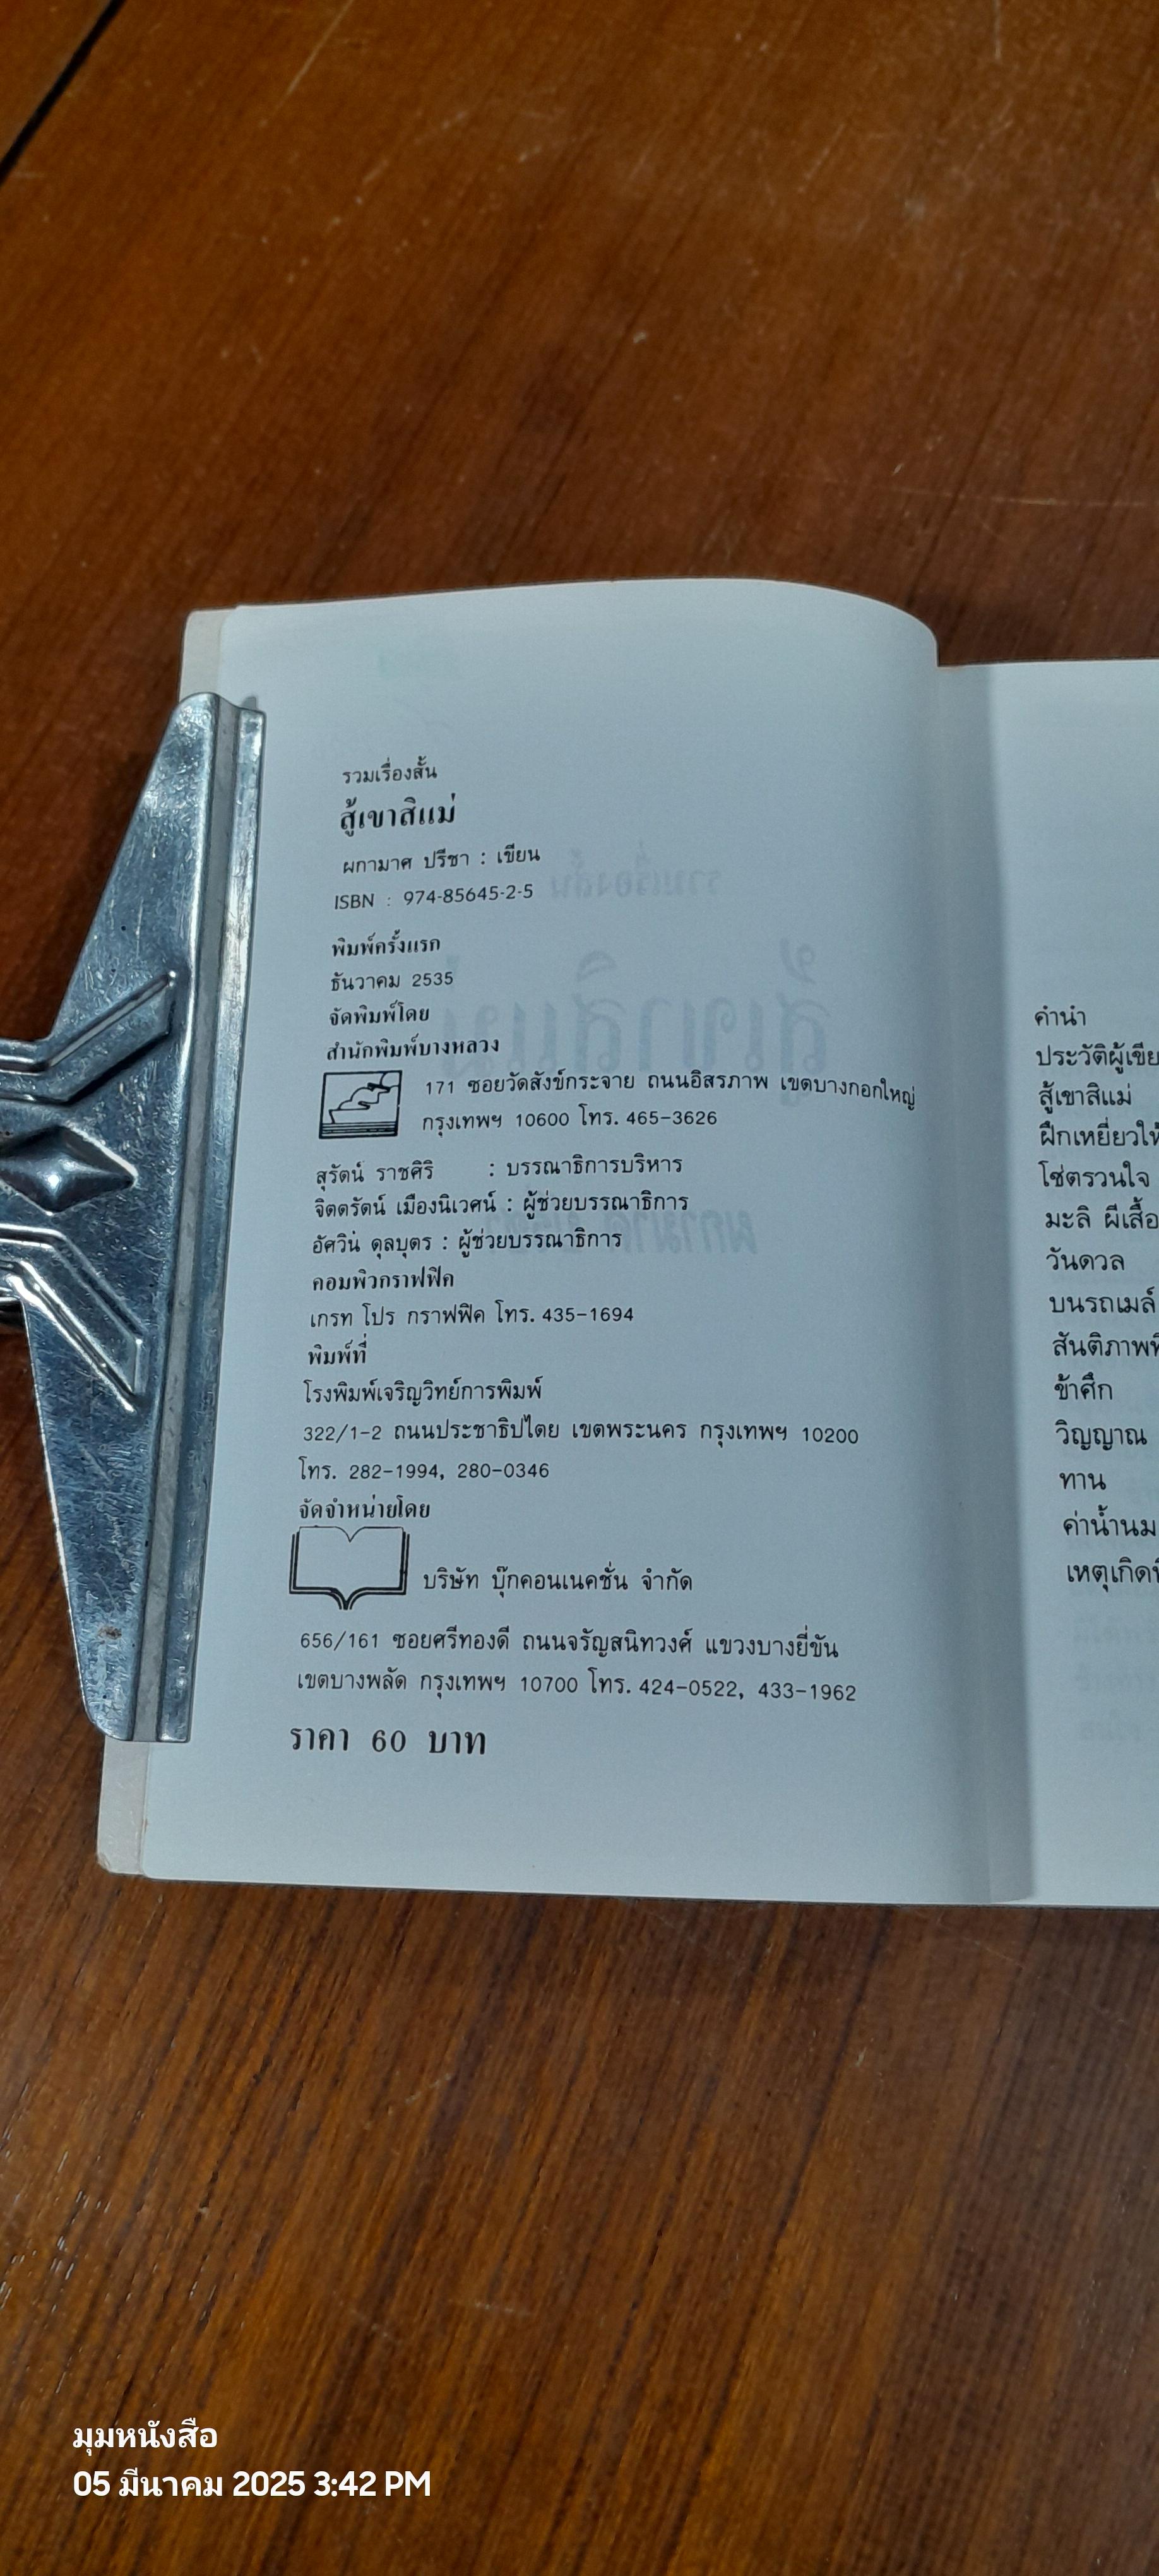 รวมเรื่องสั้น
สู้เขาสิแม่
ผกามาศ ปรีชา : เขียน
ISBN : 974-85645-2-5
พิมพ์ครั้งแรก
ธันวาคม 2535
จัดพิมพ์โดย
สำนักพิมพ์บางหลวง
171 ซอยวัดสังข์กระจาย ถนนอิสรภาพ เขตบางกอกใหญ่
กรุงเทพฯ 10600 โทร. 465-3626
สุรัตน์ ราชศิริ : บรรณาธิการบริหาร
จิตตรัตน์ เมืองนิเวศน์ : ผู้ช่วยบรรณาธิการ
อัศวิน ดุลบุตร : ผู้ช่วยบรรณาธิการ
คอมพิวกราฟฟิค
เกรท โปร กราฟฟิค โทร. 435-1694
พิมพ์ที่
โรงพิมพ์เจริญวิทย์การพิมพ์
322/1-2 ถนนประชาธิปไตย เขตพระนคร กรุงเทพฯ 10200
โทร. 282-1994, 280-0346
จัดจำหน่ายโดย
บริษัท บุ๊กคอนเนคชั่น จำกัด
656/161 ซอยศรีทองดี ถนนจรัญสนิทวงศ์ แขวงบางยี่ขัน
เขตบางพลัด กรุงเทพฯ 10700 โทร. 424-0522, 433-1962
ราคา 60 บาท
คำนำ
ประวัติผู้เขีย
สู้เขาสิแม่
ฝึกเหยี่ยวให้
โซ่ตรวนใจ
มะลิ ผีเสื้อ
วันดวล
บนรถเมล์
สันติภาพที
ข้าศึก
วิญญาณ
ทาน
ค่าน้ำนม
เหตุเกิดที
มุมหนังสือ
05 มีนาคม 2025 3:42 PM